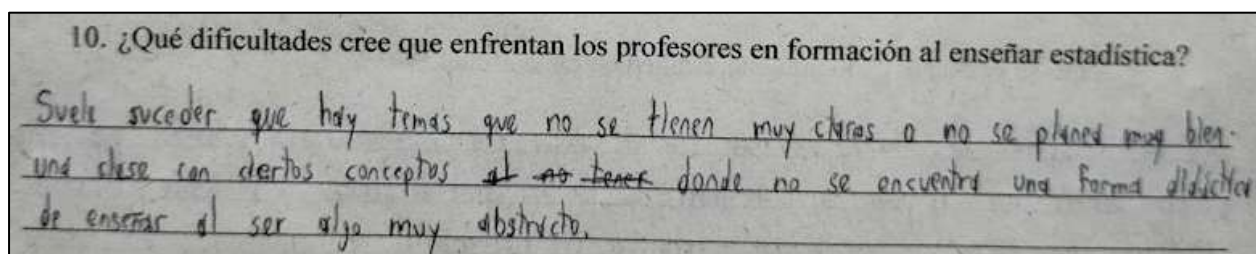 10. ¿Qué dificultades cree que enfrentan los profesores en formación al enseñar estadística?
Suele suceder que hay temas que no se tienen muy claros o no se planea muy bien
una clase con ciertos conceptos al no tener donde no se encuentra una forma didáctica
de enseñar al ser algo muy abstracto.